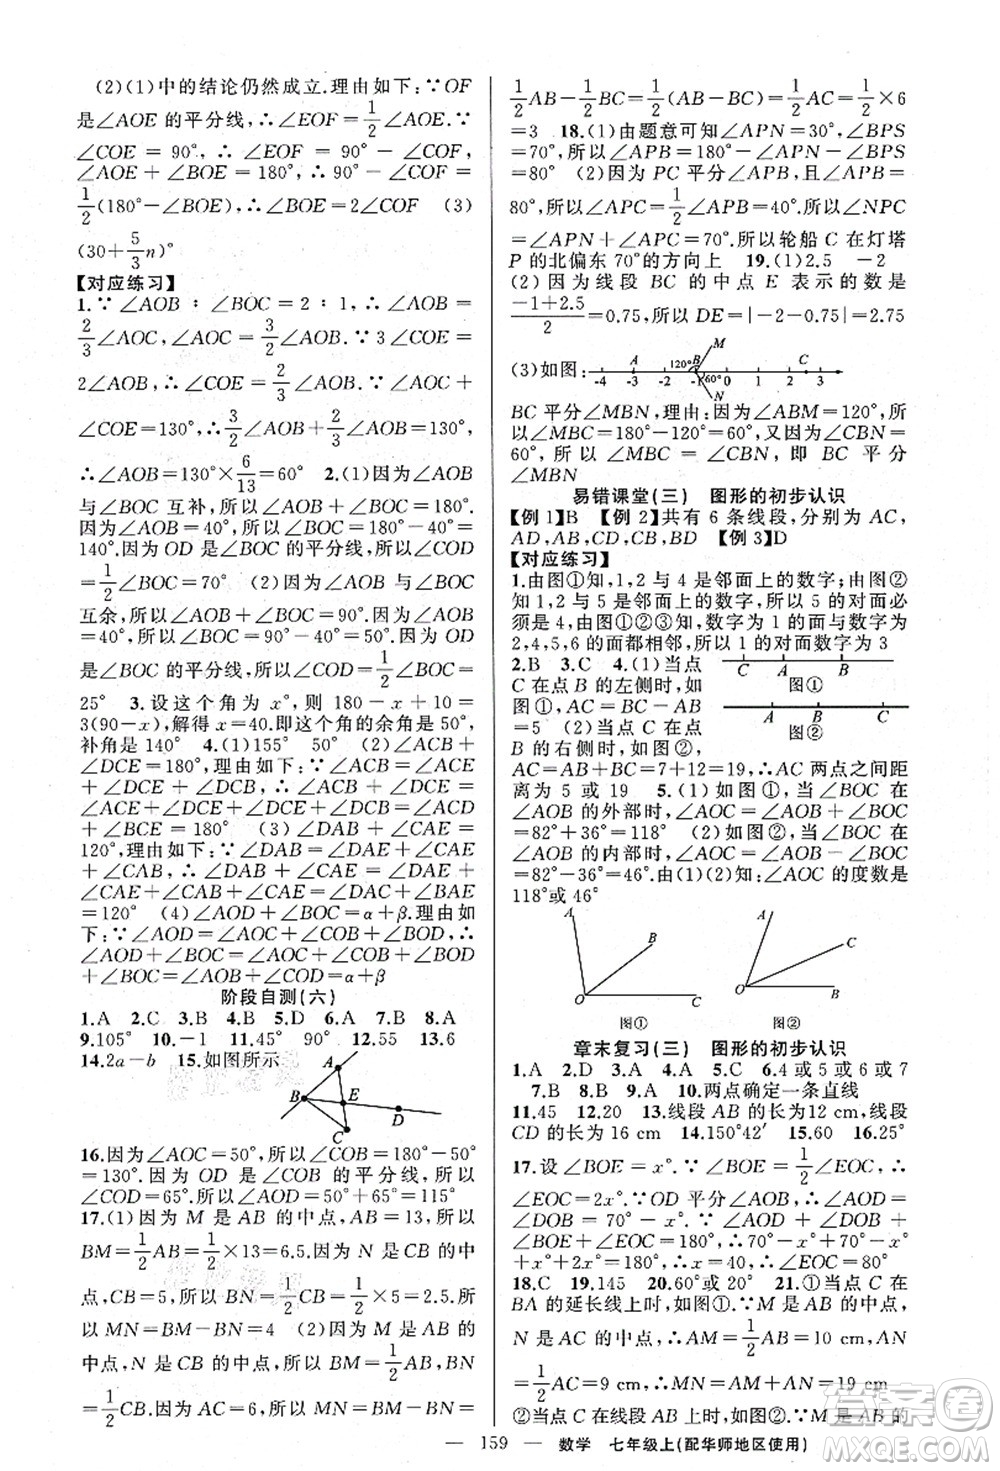 (2)(1)中的结论仍然成立.理由如下:∵OF
是∠AOE 的平分线,∴∠EOF=1/2∠AOE.∵
∠COE = 90°, ∴ ∠EOF = 90° - ∠COF,
∠AOE + ∠BOE = 180°, ∴ 90° - ∠COF =
1/2(180°-∠BOE),∴∠BOE=2∠COF (3)
(30+5/3n)°
【对应练习】
1.∵∠AOB∶∠BOC=2∶1,∴∠AOB=
2/3∠AOC,∴∠AOC=3/2∠AOB.∵∠COE=
2∠AOB,∴∠COE=3/2∠AOB.∵∠AOC+
∠COE=130°,∴3/2∠AOB+2/3∠AOB=130°,
∴∠AOB=130°×6/13=60° 2.(1)因为∠AOB
与∠BOC 互补,所以∠AOB+∠BOC=180°.
因为∠AOB=40°,所以∠BOC=180°-40°=
140°.因为 OD 是∠BOC的平分线,所以∠COD
=1/2∠BOC=70° (2)因为∠AOB 与∠BOC
互余,所以∠AOB+∠BOC=90°.因为∠AOB=
40°,所以∠BOC=90°-40°=50°.因为 OD
是∠BOC 的平分线,所以∠COD=1/2∠BOC=
25° 3.设这个角为 x°,则 180-x+10=
3(90-x),解得 x=40.即这个角的余角是 50°,
补角是 140° 4.(1)155° 50° (2)∠ACB+
∠DCE=180°,理由如下:∵∠ACB=∠ACE+
∠DCE+∠DCB,∴∠ACB+∠DCE=
∠ACE+∠DCE+∠DCB+∠DCE=∠ACD
+∠BCE=180° (3)∠DAB+∠CAE=
120°,理由如下:∵∠DAB=∠DAE+∠CAE+
∠CAB,∴∠DAB+∠CAE=∠DAE+
∠CAE+∠CAB+∠CAE=∠DAC+∠BAE
=120° (4)∠AOD+∠BOC=α+β.理由如
下:∵∠AOD=∠AOC+∠COB+∠BOD,∴
∠AOD+∠BOC=∠AOC+∠COB+∠BOD+
∠BOC=∠AOB+∠COD=α+β
阶段自测(六)
1.A 2.C 3.B 4.B 5.D 6.A 7.B 8.A
9.105° 10.-1 11.45° 90° 12.55 13.6
14.2a-b 15.如图所示
A
B
E
D
C
16.因为∠AOC=50°,所以∠COB=180°-50°
=130°.因为 OD 是∠COB 的平分线,所以
∠COD=65°.所以∠AOD=50°+65°=115°
17.(1)因为 M 是 AB 的中点,AB=13,所以
BM=1/2AB=1/2×13=6.5.因为 N 是 CB 的中
点,CB=5,所以 BN=1/2CB=1/2×5=2.5.所
以 MN=BM-BN=4 (2)因为 M 是 AB 的
中点,N 是 CB 的中点,所以 BM=1/2AB,BN
=1/2CB.因为 AC=6,所以 MN=BM-BN=
1/2AB-1/2BC=1/2(AB-BC)=1/2AC=1/2×6
=3 18.(1)由题意可知∠APN=30°,∠BPS
=70°,所以∠APB=180°-∠APN-∠BPS
=80° (2)因为 PC 平分∠APB,且∠APB=
80°,所以∠APC=1/2∠APB=40°,所以∠CPN
=∠APN+∠APC=70°.所以轮船 C 在灯塔
P 的北偏东70°的方向上 19.(1)2.5 -2
(2)因为线段 BC 的中点 E 表示的数是
(-1+2.5)/2=0.75,所以 DE=|-2-0.75|=2.75
(3)如图:
M
A
120°
B
C
-4 -3 -2 -1 0 1 2 3
60°
N
BC 平分∠MBN,理由:因为∠ABM=120°,所
以∠MBC=180°-120°=60°.又因为∠CBN=
60°,所以∠MBC=∠CBN,即 BC 平分
∠MBN
易错课堂(三) 图形的初步认识
【例1】B 【例2】共有 6 条线段,分别为 AC,
AD,AB,CD,CB,BD 【例3】D
【对应练习】
1.由图①知,1,2与4是邻面上的数字;由图②
知,1,2与5是邻面上的数字,所以2的对面必
须是4;由图①②③知,数字为1的面与数字为
2,4,5,6的面都相邻,所以1的对面数字为3
2.B 3.C 4.(1)当点
C A B
C 在点 B 的左侧时,如
图①
图①,AC=BC-AB
A B C
=5 (2)当点 C 在点
图②
B 的右侧时,如图②,
AC=AB+BC=7+12=19,∴AC 两点之间距
离为 5 或 19 5.(1)如图①,当∠BOC 在
∠AOB 的外部时,∠AOC=∠AOB+∠BOC
=82°+36°=118° (2)如图②,当∠BOC 在
∠AOB 的内部时,∠AOC=∠AOB-∠BOC=
82°-36°=46°.综上可知:∠AOC的度数是
118°或46°
A
B
O
C
图①
A
C
O
B
图②
章末复习(三) 图形的初步认识
1.A 2.D 3.A 4.A 5.C 6.4 或 5 或 6 或 7
7.B 8.B 9.A 10.两点确定一条直线
11.45 12.20 13.线段 AB 的长为12 cm,线段
CD 的长为 16 cm 14.150°42′ 15.60 16.25°
17.设∠BOE=x°.∵∠BOE=1/2∠EOC,∴
∠EOC=2x°.∵OD 平分∠AOB,∴∠AOD=
∠DOB=70°-x°.∵∠AOD+∠DOB+
∠BOE+∠EOC=180°,∴70-x+70-x+x+2x
=180,∴x=40,∴∠EOC=80°
18.C 19.145 20.120 21.①当点 C 在
BA 的延长线上时,如图:∵M 是 AB 的中点,
N 是 AC 的中点,∴AM=1/2AB=10 cm,AN
=1/2AC=9 cm,∴MN=AM+AN=19 cm
②当点 C 在线段 AB 上时,如图,∵M 是 AB 的
— 159 — 数学 七年级上(配华师地区使用)
答案圈